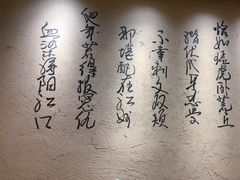 恰如猛虎卧荒丘
潜伏爪牙忍受
不幸刺文双颊
那堪配在江州
他年若得报冤仇
血染浔阳江口